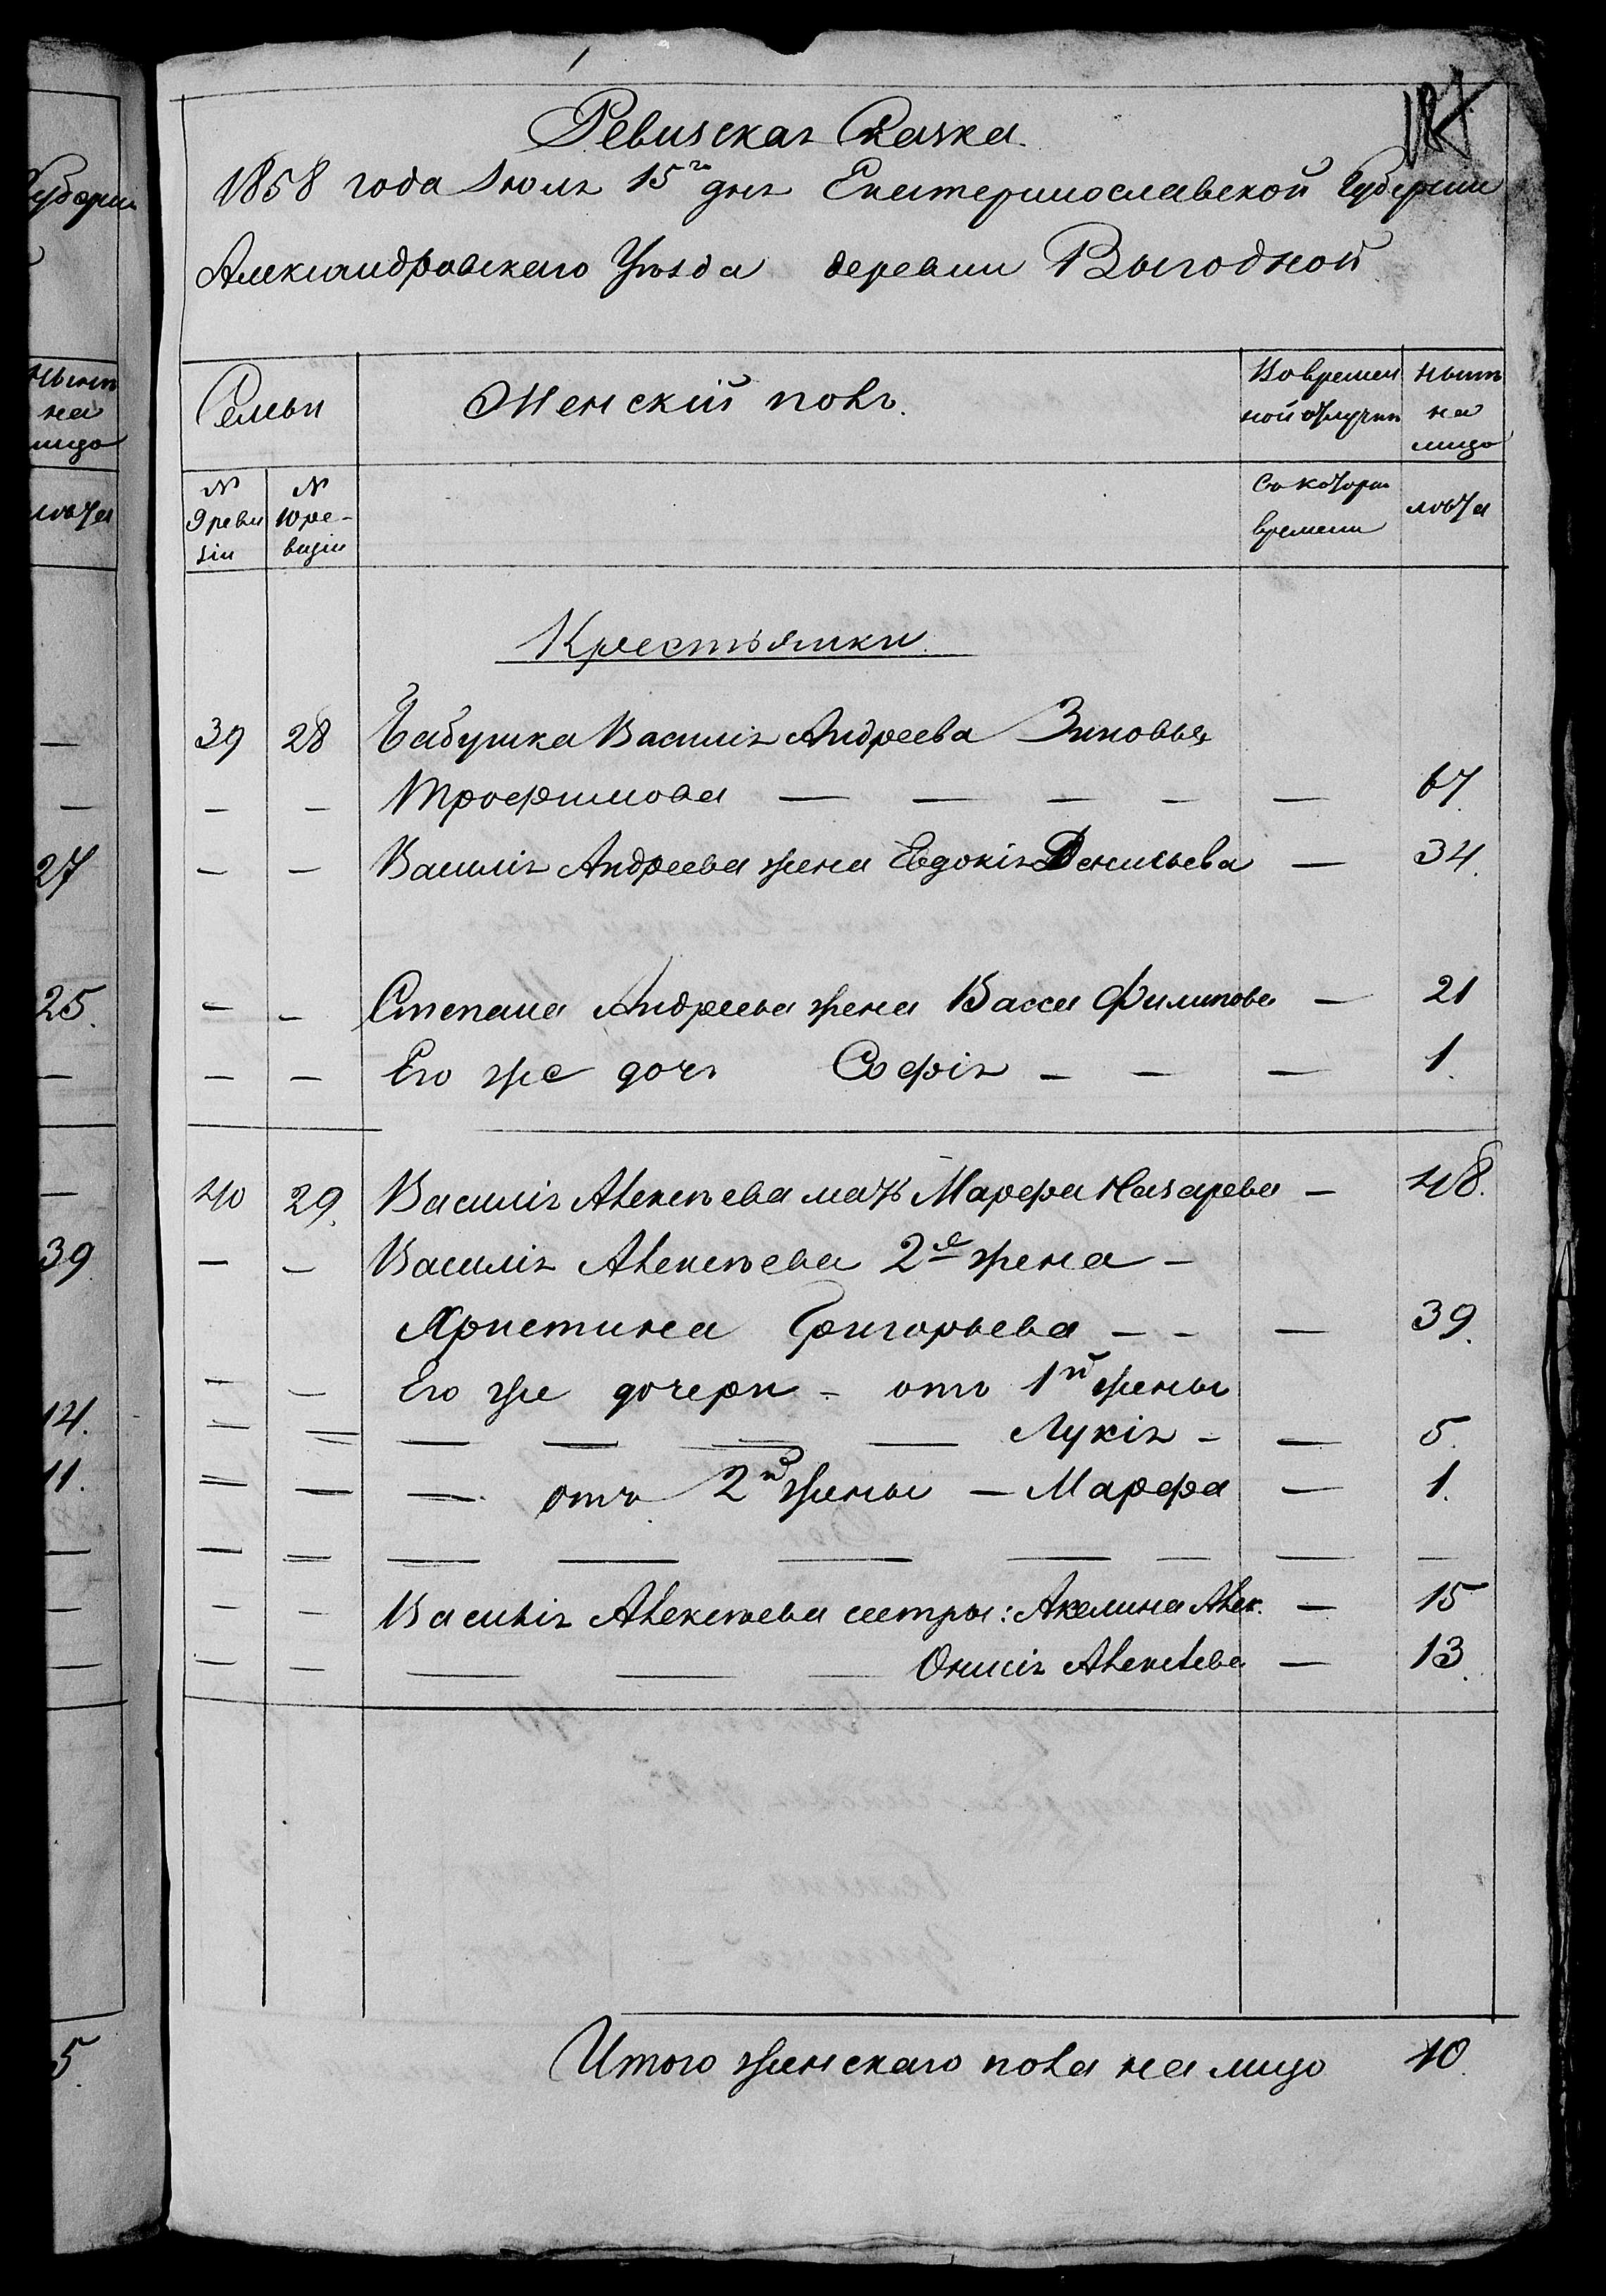 187
Ревизская Сказка.
1858 года Июля 15го дня Екатеринославской Губернии
Александровскаго Уѣзда деревни Выгодной
Семьи
Женскій полъ.
Во времен
ной отлучкѣ
нынѣ
на
лицо
№
9 реви
зіи
№
10 ре-
визіи
Съ котораго
времени
лѣта
Крестьянки.
39 28 Бабушка Василія Андреева Зиновья
— — Трофимова — — — — — 67.
— — Василія Андреева жена Евдокія Данильева — 34.
— — Степана Андреева жена Васса Филипова — 21
— — Его же дочь Софія — — — 1.
40 29. Василія Алексѣева мать Марфа Назарева — 48.
— — Василія Алексѣева 2я жена —
Христина Григорьева — — — 39.
— — Его же дочери — отъ 1й жены
— — — — — — Лукія — — 5.
— — — отъ 2й жены — Марфа — 1.
— — — — — — — — —
— — Василія Алексѣева сестры: Акелина Алек. — 15
— — — — — Онисія Алексѣева — 13.
Итого женскаго пола на лицо 10.
Губерніи
нынѣ
на
лицо
лѣта
—
—
27
25.
—
—
39
14.
11.
—
—
—
5.